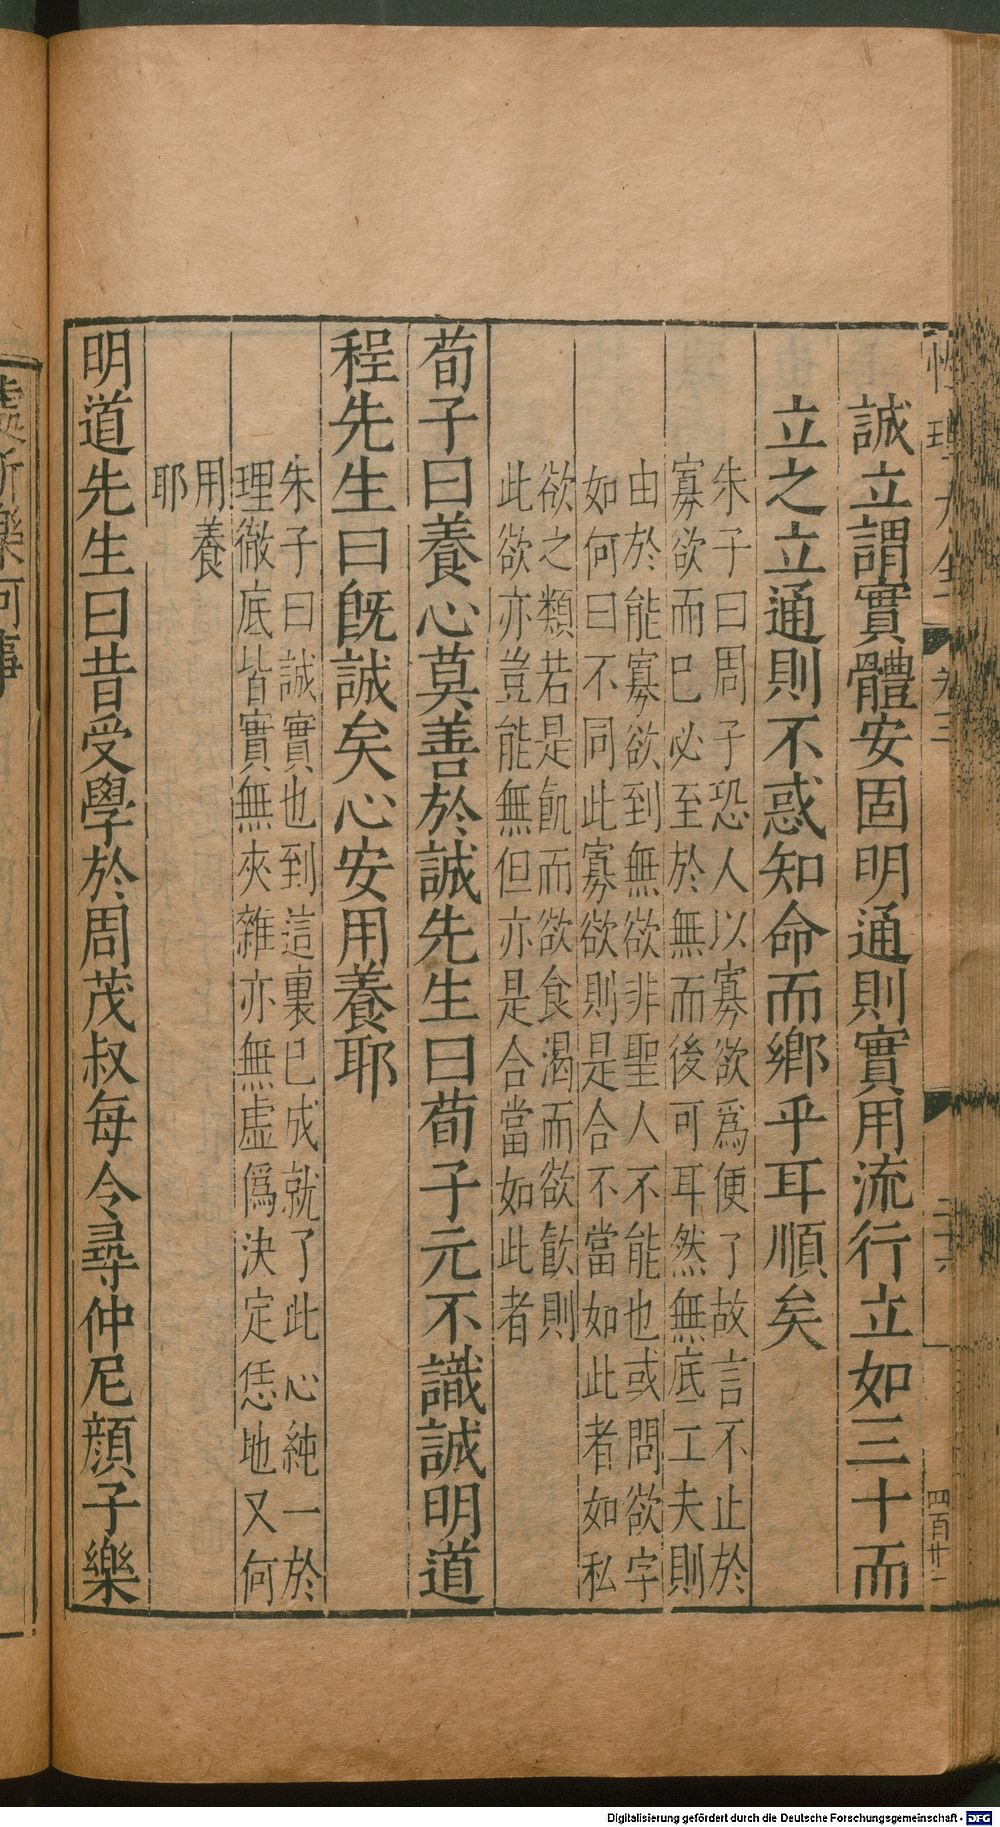 性理大全
卷三
二十六
四百廿一
誠立謂實體安固明通則實用流行立如三十而
立之立通則不惑知命而鄕乎耳順矣
朱子曰周子恐人以寡欲爲便了故言不止於
寡欲而已必至於無而後可耳然無底工夫則
由於能寡欲到無欲非聖人不能也或問欲字
如何曰不同此寡欲則是合不當如此者如私
欲之類若是飢而欲食渴而欲飮則
此欲亦豈能無但亦是合當如此者
荀子曰養心莫善於誠先生曰荀子元不識誠明道
程先生曰旣誠矣心安用養耶
朱子曰誠實也到這裏已成就了此心純一於
理徹底皆實無夾雜亦無虛僞決定恁地又何
用養
耶
明道先生曰昔受學於周茂叔每令尋仲尼顔子樂
處所樂何事
Digitalisierung gefördert durch die Deutsche Forschungsgemeinschaft - DFG